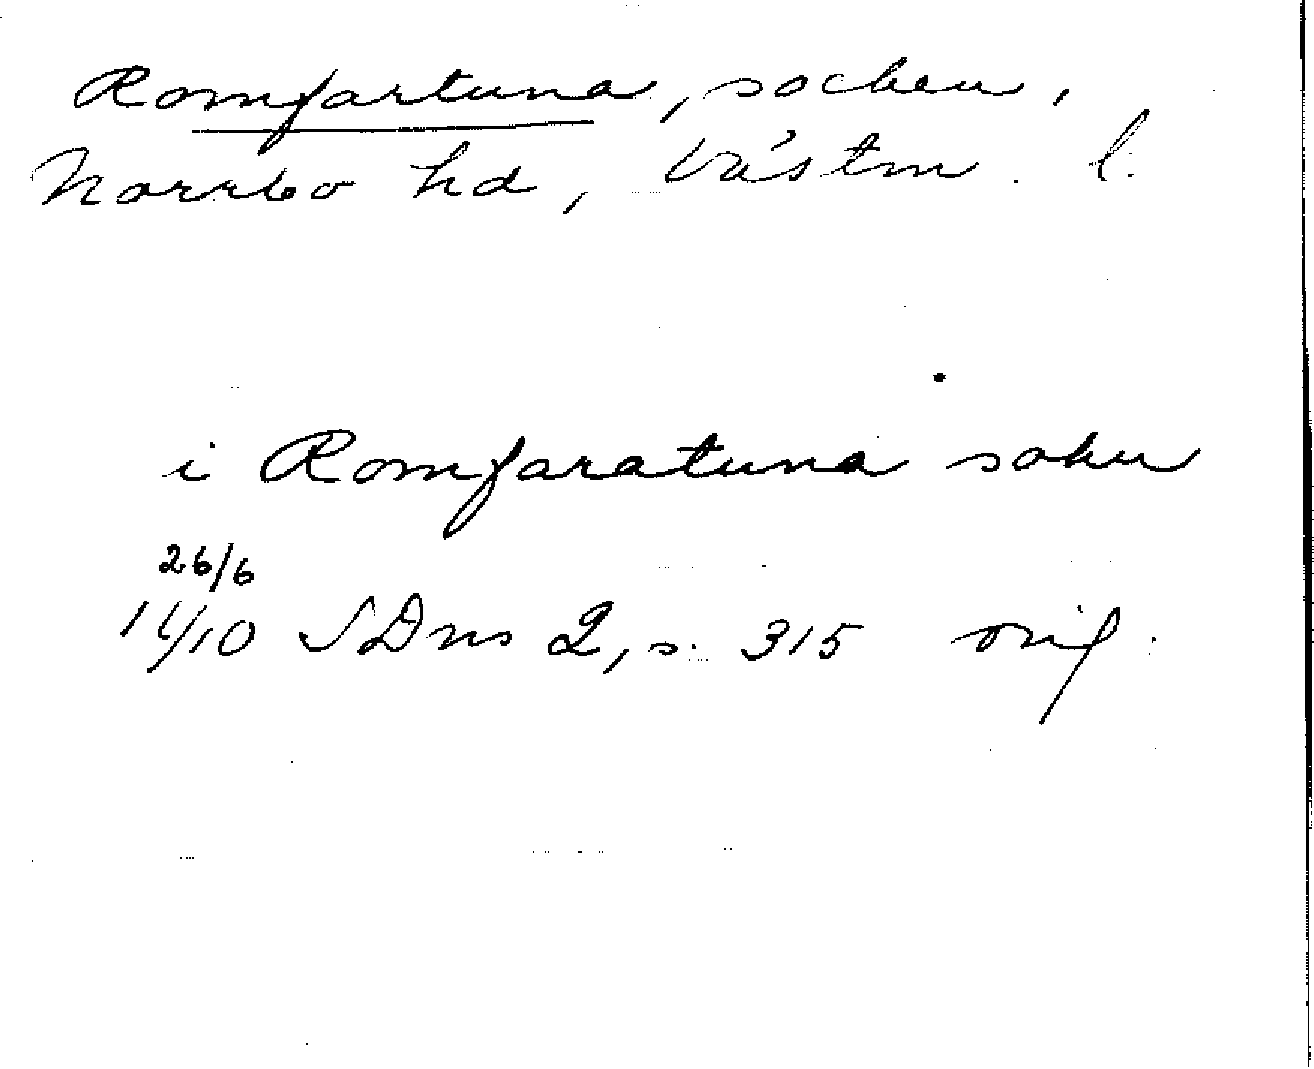 Romfartuna, socken,
Norrbo hd, Västm. l.
i Romfaratuna sokn
26/6
1410 SDns 2, s. 315 orig.